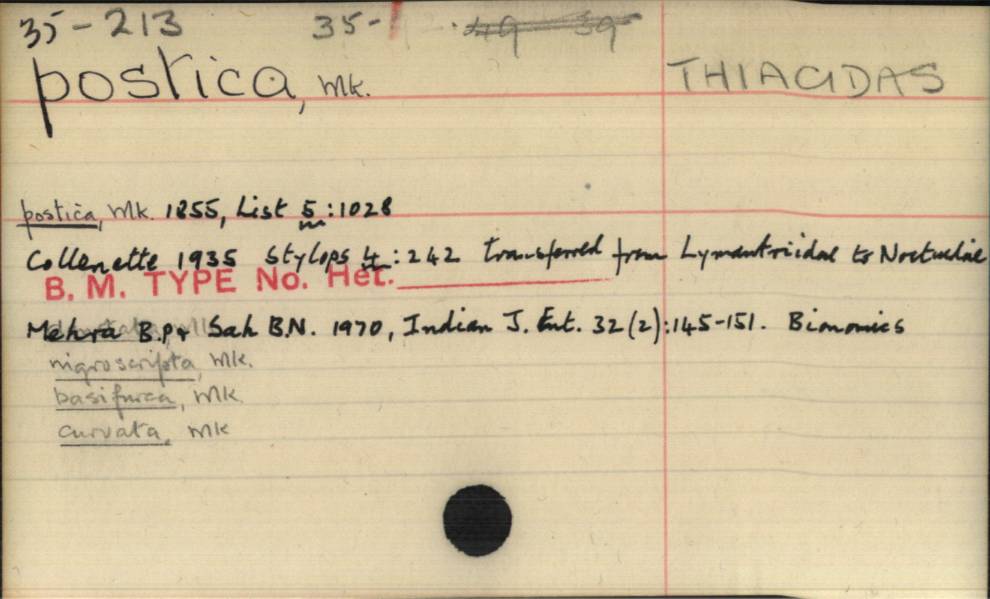 35-213 35-1 49 59
postica, Mk. THIACIDAS
postica, Mk. 1855, List 5:1028
Collenette 1935 Stylops 4:242 transferred from Lymantriidae to Noctuidae
B. M. TYPE No. Het.
Mehra B.P & Sah B.N. 1970, Indian J. Ent. 32(2):145-151. Bionomics
nigroscripta, Mk.
basifurca, Mk.
curvata, Mk